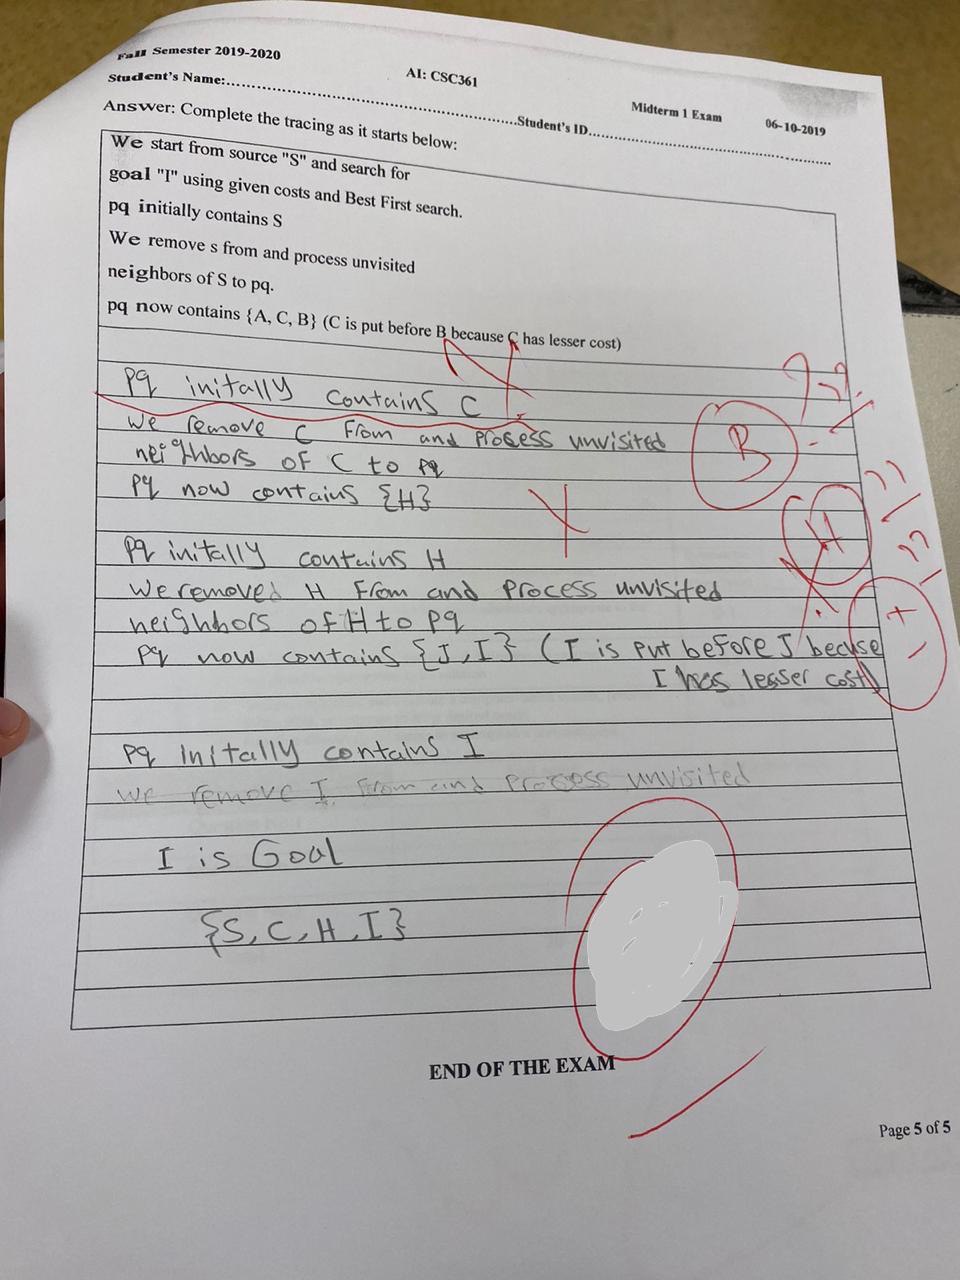 Fall Semester 2019-2020
AI: CSC361
Midterm 1 Exam
06-10-2019
Student's Name:.............................Student's ID.............................
Answer: Complete the tracing as it starts below:
We start from source "S" and search for
goal "I" using given costs and Best First search.
pq initially contains S
We remove s from and process unvisited
neighbors of S to pq.
pq now contains {A, C, B} (C is put before B because C has lesser cost)
Pq initally contains C
We remove C from and process unvisited
neighbors of C to pq
B
pq now contains {H}
H
Pq initally contains H
We removed H from and process unvisited
neighbors of H to pq
pq now contains {J, I} (I is put before J becuse
I has lesser cost)
pq initally contains I
we remove I from and process unvisited
I is Goal
{S, C, H, I}
END OF THE EXAM
Page 5 of 5